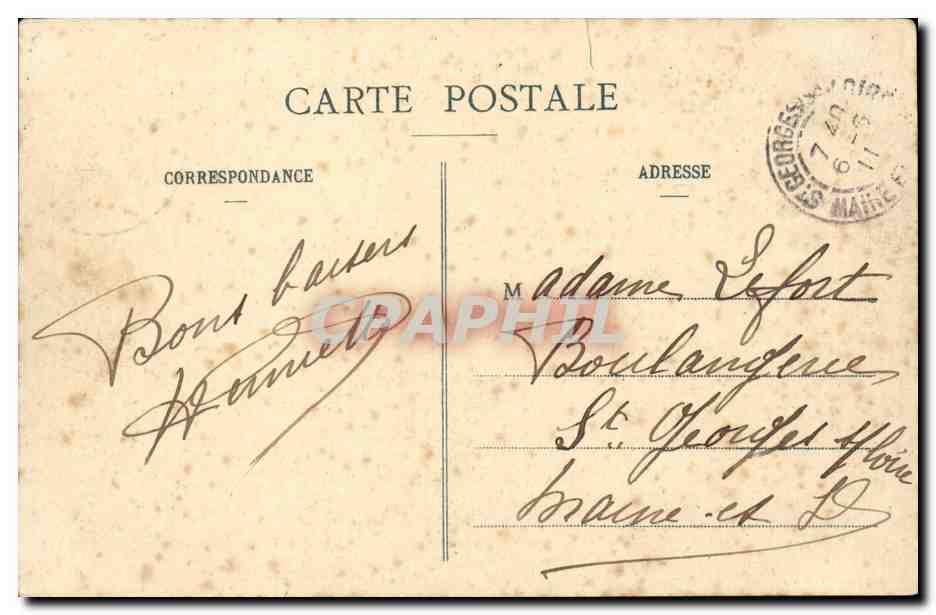 CARTE POSTALE
CORRESPONDANCE
ADRESSE
ST GEORGES S/ LOIRE
7 40
6 -6
11
MAINE ET
Bons baisers
Henriette
Madame Lefort
Boulangerie
St. Georges s/Loire
Maine et L
CPAPHIL